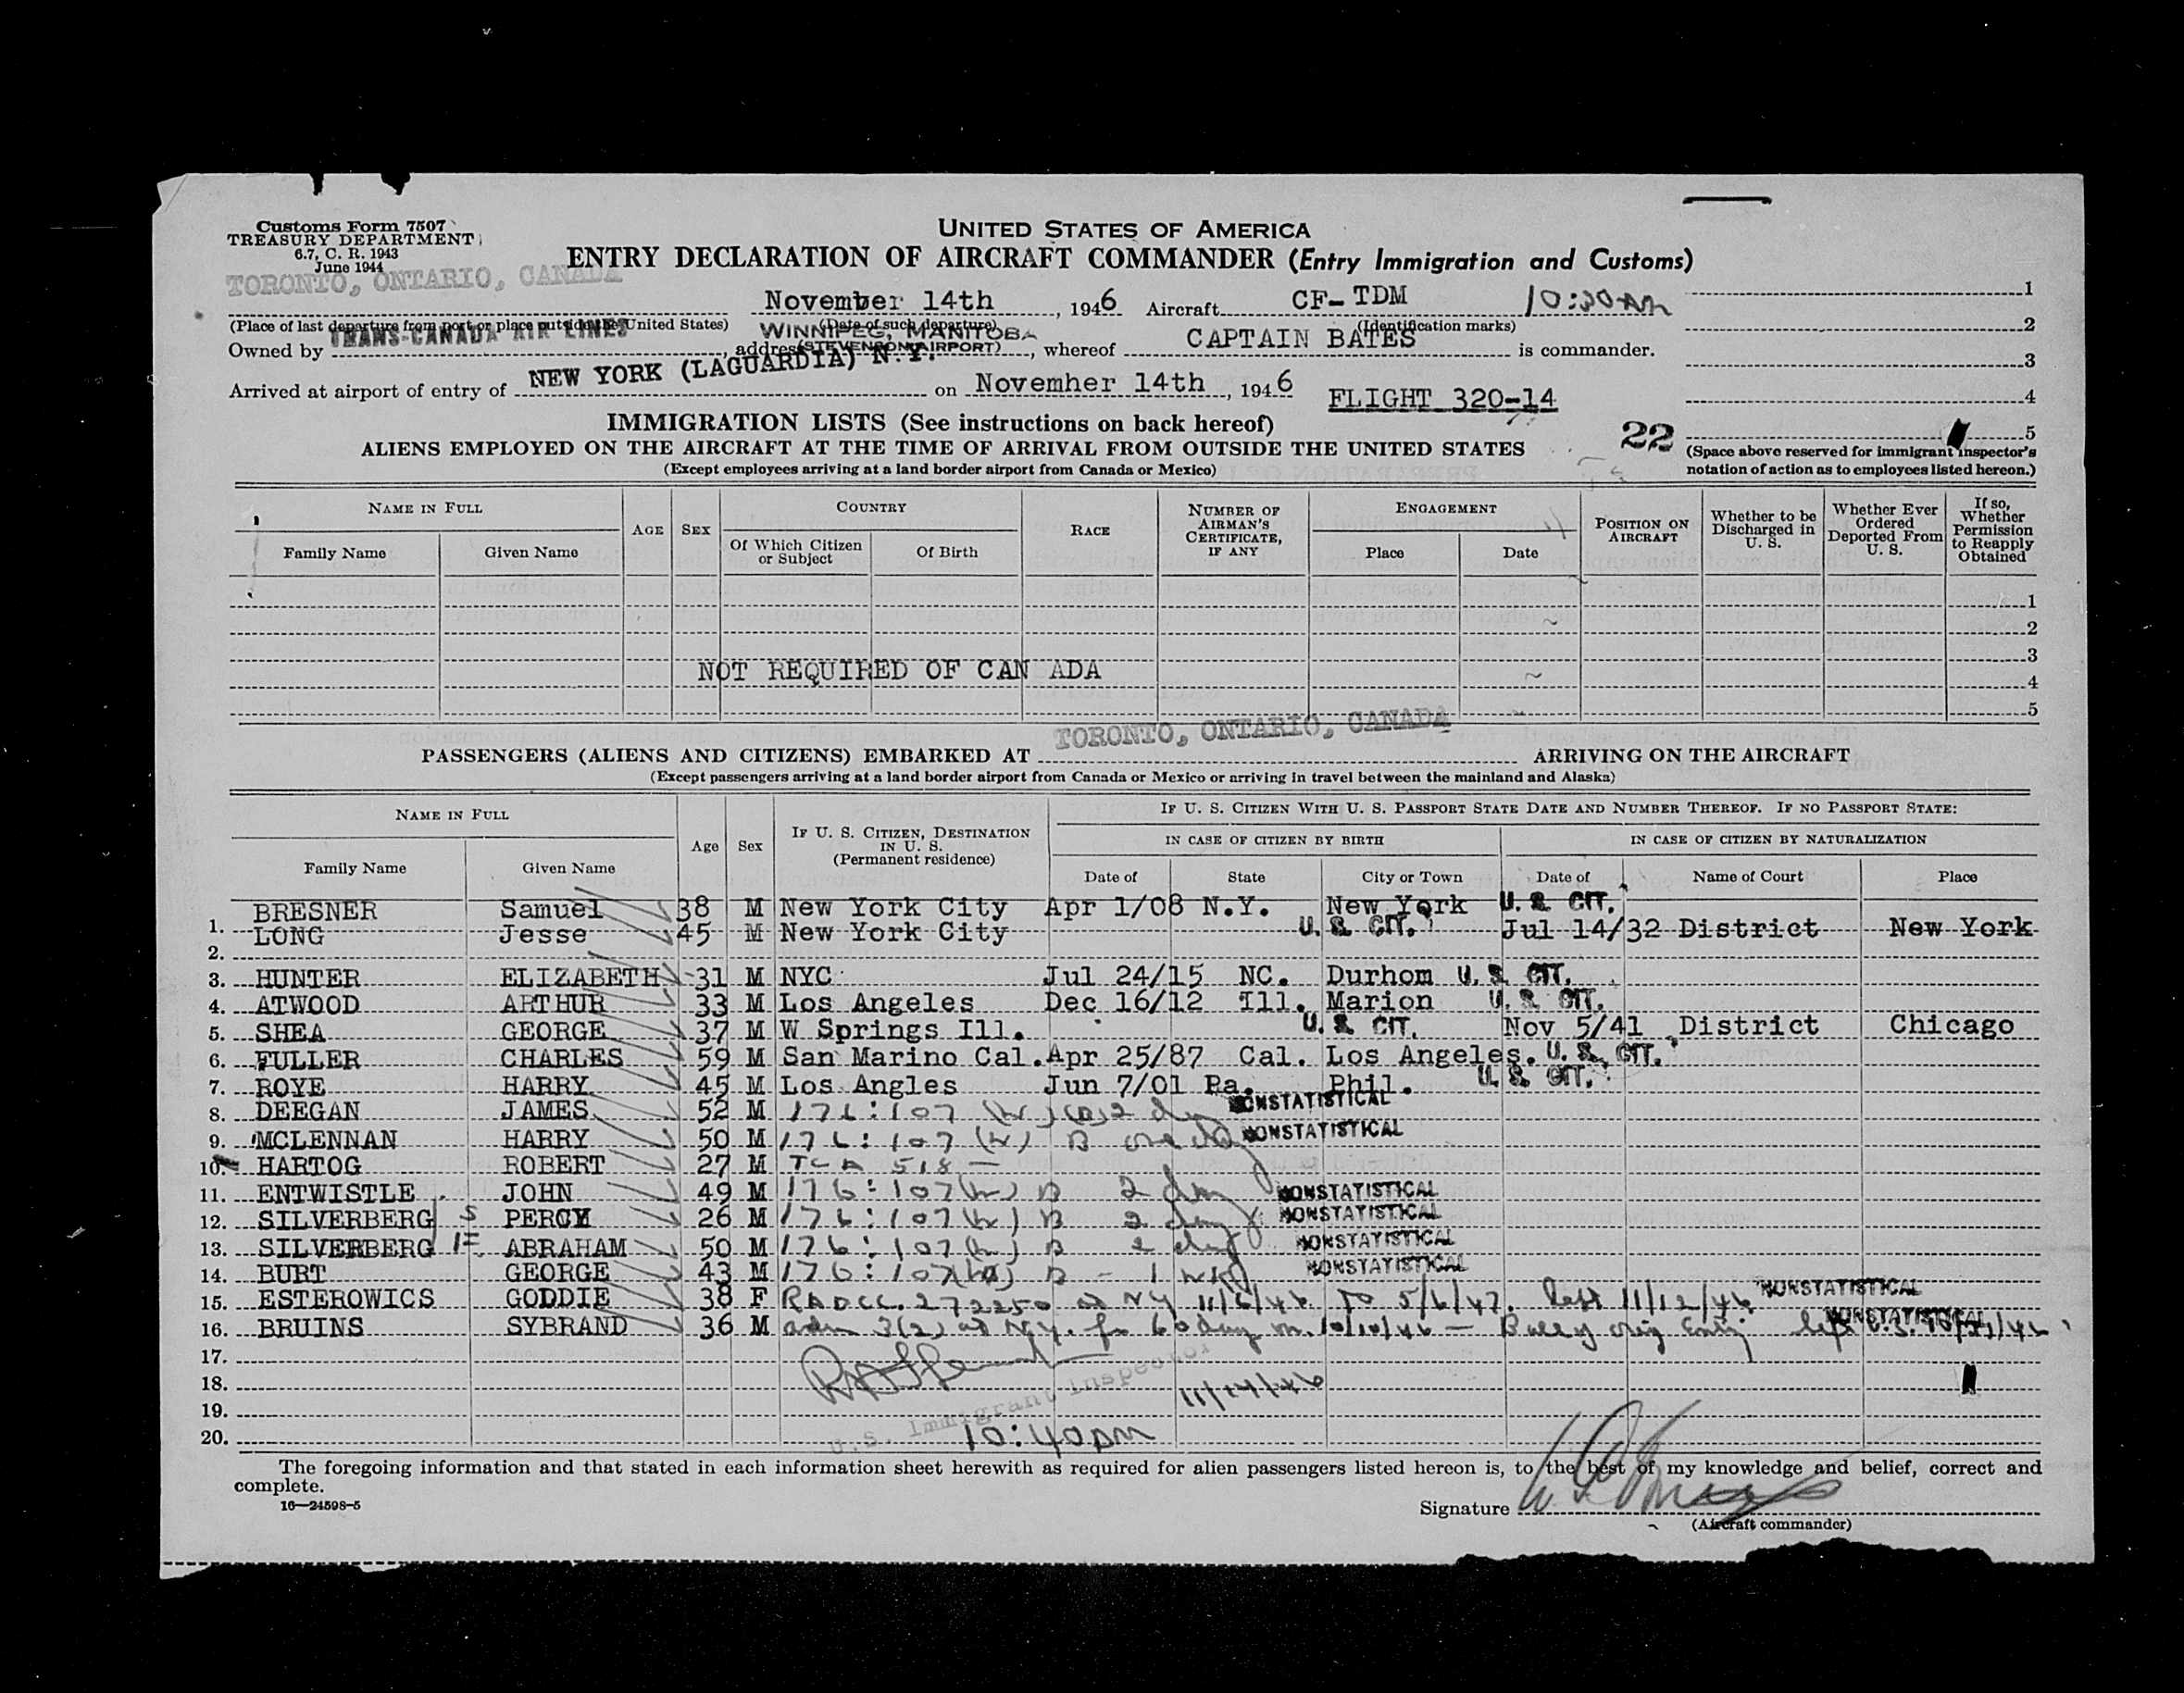 Customs Form 7507
TREASURY DEPARTMENT
6.7, C. R. 1943
June 1944
UNITED STATES OF AMERICA
ENTRY DECLARATION OF AIRCRAFT COMMANDER (Entry Immigration and Customs)
TORONTO, ONTARIO, CANADA November 14th, 1946 Aircraft CF-TDM 10:30 AM 1
(Place of last departure from port or place outside the United States) (Date of such departure) (Identification marks) 2
Owned by TRANS-CANADA AIR LINES, address WINNIPEG, MANITOBA (STEVENSON AIRPORT), whereof CAPTAIN BATES is commander. 3
Arrived at airport of entry of NEW YORK (LAGUARDIA) N.Y. on November 14th, 1946 FLIGHT 320-14 4
IMMIGRATION LISTS (See instructions on back hereof) 22 5
ALIENS EMPLOYED ON THE AIRCRAFT AT THE TIME OF ARRIVAL FROM OUTSIDE THE UNITED STATES
(Except employees arriving at a land border airport from Canada or Mexico)
(Space above reserved for immigrant inspector's
notation of action as to employees listed hereon.)
NAME IN FULL
Family Name Given Name
AGE SEX
COUNTRY
Of Which Citizen or Subject Of Birth
RACE
NUMBER OF AIRMAN'S CERTIFICATE, IF ANY
ENGAGEMENT
Place Date
POSITION ON AIRCRAFT
Whether to be Discharged in U. S.
Whether Ever Ordered Deported From U. S.
If so, Whether Permission to Reapply Obtained
1
2
3
NOT REQUIRED OF CAN ADA
4
5
PASSENGERS (ALIENS AND CITIZENS) EMBARKED AT TORONTO, ONTARIO, CANADA ARRIVING ON THE AIRCRAFT
(Except passengers arriving at a land border airport from Canada or Mexico or arriving in travel between the mainland and Alaska)
NAME IN FULL
Family Name Given Name
Age Sex
IF U. S. CITIZEN, DESTINATION IN U. S. (Permanent residence)
IF U. S. CITIZEN WITH U. S. PASSPORT STATE DATE AND NUMBER THEREOF. IF NO PASSPORT STATE:
IN CASE OF CITIZEN BY BIRTH IN CASE OF CITIZEN BY NATURALIZATION
Date of State City or Town Date of Name of Court Place
1. BRESNER Samuel 38 M New York City Apr 1/08 N.Y. New York U. S. CIT.
LONG Jesse 45 M New York City U. S. CIT. Jul 14/32 District New York
2.
3. HUNTER ELIZABETH 31 M NYC Jul 24/15 NC. Durhom U. S. CIT.
4. ATWOOD ARTHUR 33 M Los Angeles Dec 16/12 Ill. Marion U. S. CIT.
5. SHEA GEORGE 37 M W Springs Ill. U. S. CIT. Nov 5/41 District Chicago
6. FULLER CHARLES 59 M San Marino Cal. Apr 25/87 Cal. Los Angeles. U. S. CIT.
7. ROYE HARRY 45 M Los Angles Jun 7/01 Pa. Phil. U. S. CIT.
8. DEEGAN JAMES 52 M 176:107 2 day NONSTATISTICAL
9. MCLENNAN HARRY 50 M 176:107 B one day NONSTATISTICAL
10. HARTOG ROBERT 27 M TCA 518 —
11. ENTWISTLE JOHN 49 M 176:107 B 2 day NONSTATISTICAL
12. SILVERBERG S PERCY 26 M 176:107 B 2 day NONSTATISTICAL
13. SILVERBERG ABRAHAM 50 M 176:107 B 2 day NONSTATISTICAL
14. BURT GEORGE 43 M 176:107 B - 1 wk NONSTATISTICAL
15. ESTEROWICS GODDIE 38 F 272250 at NY 11/6/46 to 5/6/47. left 11/12/46 NONSTATISTICAL
16. BRUINS SYBRAND 36 M adm 3(2) at N.Y. for 60 days on 10/10/46 — orig Entry left U.S. NONSTATISTICAL
17.
18. U.S. Immigrant Inspector 11/14/46
19.
20. 10:40 am
The foregoing information and that stated in each information sheet herewith as required for alien passengers listed hereon is, to the best of my knowledge and belief, correct and
complete.
16—24598-5
Signature
(Aircraft commander)